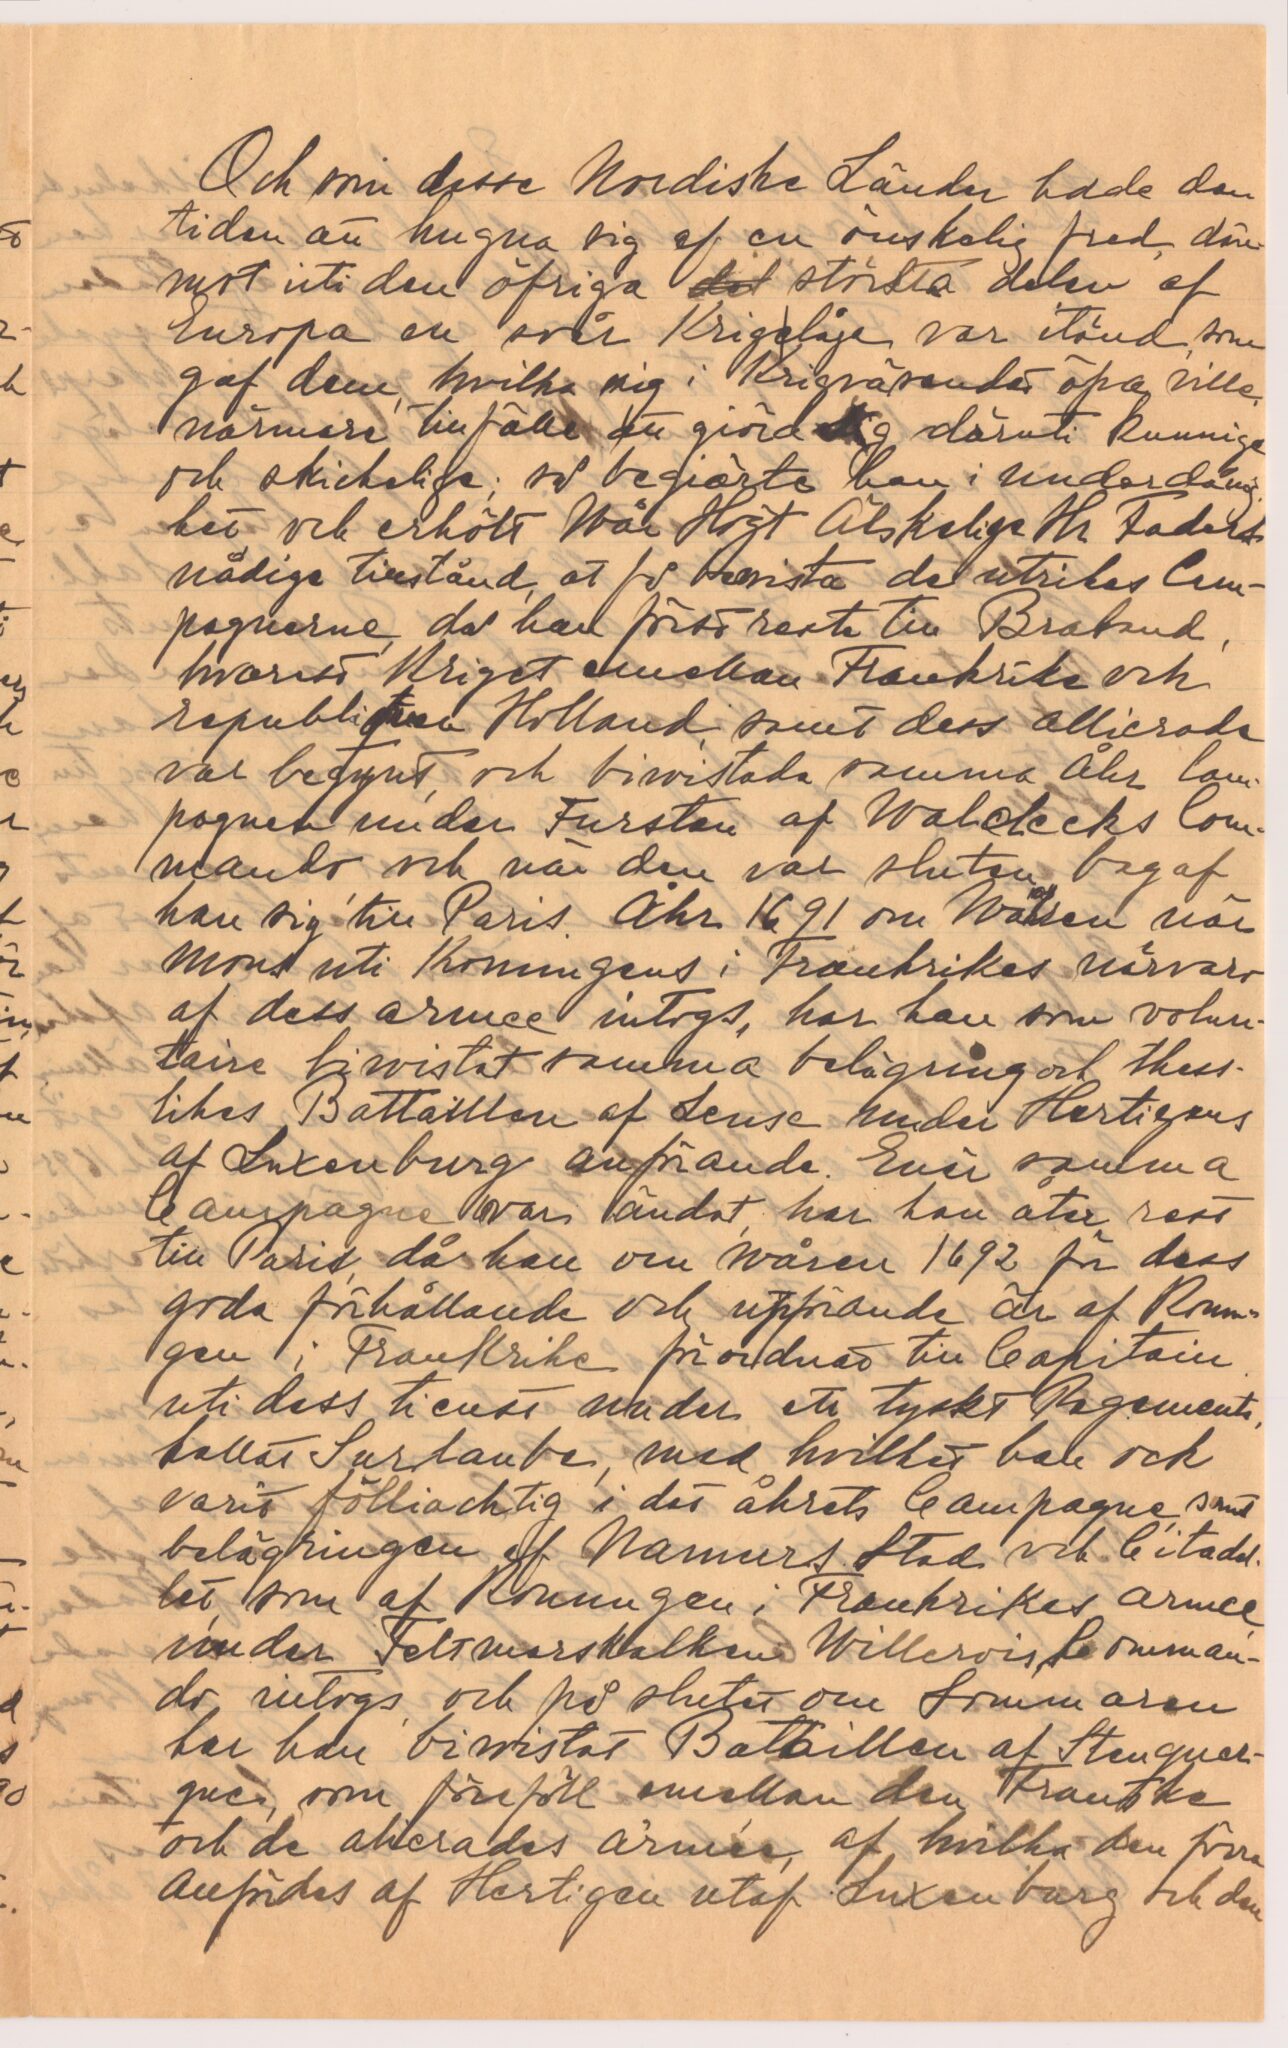 Och som desse Nordiske Länder hade den
tiden att hugna sig af en önskelig fred, där-
mot uti den öfriga det största delen af
Europa en svår Krigslåge var itänd, som
gaf dem, hvilka sig i Krigsväsendet öfva ville,
närmere tillfälle att giöra sig däruti kunnige
och skickelige; så begiärte han i underdånig-
het och erhölt Wår Högt Älskelige Hr Faders
nådige tillstånd, at få bevista de utrikes Cam-
pagnerne, då han först reste till Braband,
hvarest Kriget emellan Frankrike och
republiquen Holland, samt dess allierade
var begynt, och biwistade samma Åhr Cam-
pagnen under Fursten af Waldecks Com-
mando och när den var sluten begaf
han sig till Paris. Åhr 1691 om Wåren när
Mons uti Konungens i Frankrikes närvaro
af dess armee intogs, har han som volun-
taire biwistat samma belägring och thess-
likes Battaillen af Leuse under Hertigens
af Luxenburg anförande. Efter samma
Campagne var ändat, har han åter rest
till Paris, då han om Wåren 1692 för dess
goda förhållande och upförande är af Konun-
gen i Frankrike förordnat till Capitain
uti dess tienst under ett tyskt Regemente,
kallat Surlaube, med hvilket han ock
varit fölliachtig i det åhrets Campagne, samt
belägringen af Namurs Stad och Citadel-
let, som af Konungen i Frankrikes armee
under Feltmarskalken Willerois Comman-
do intogs, och på slutet om Sommaren
har han biwistat Battaillen af Stenquer-
quen, som föreföll emellan den Franske
och de allierades armée, af hvilka den förra
anfördes af Hertigen utaf Luxenburg och den